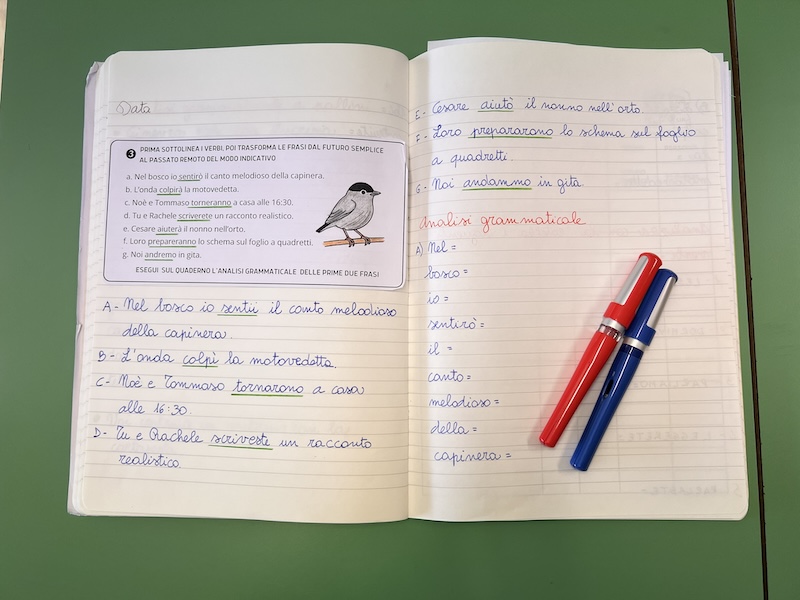 Data
3 PRIMA SOTTOLINEA I VERBI, POI TRASFORMA LE FRASI DAL FUTURO SEMPLICE
AL PASSATO REMOTO DEL MODO INDICATIVO
a. Nel bosco io sentirò il canto melodioso della capinera.
b. L'onda colpirà la motovedetta.
c. Noè e Tommaso torneranno a casa alle 16:30.
d. Tu e Rachele scriverete un racconto realistico.
e. Cesare aiuterà il nonno nell'orto.
f. Loro prepareranno lo schema sul foglio a quadretti.
g. Noi andremo in gita.
ESEGUI SUL QUADERNO L'ANALISI GRAMMATICALE DELLE PRIME DUE FRASI
A - Nel bosco io sentii il canto melodioso
della capinera.
B - L'onda colpì la motovedetta.
C - Noè e Tommaso tornarono a casa
alle 16:30.
D - Tu e Rachele scriveste un racconto
realistico.
E - Cesare aiutò il nonno nell'orto.
F - Loro prepararono lo schema sul foglio
a quadretti.
G - Noi andammo in gita.
Analisi grammaticale
A) Nel =
bosco =
io =
sentirò =
il =
canto =
melodioso =
della =
capinera =